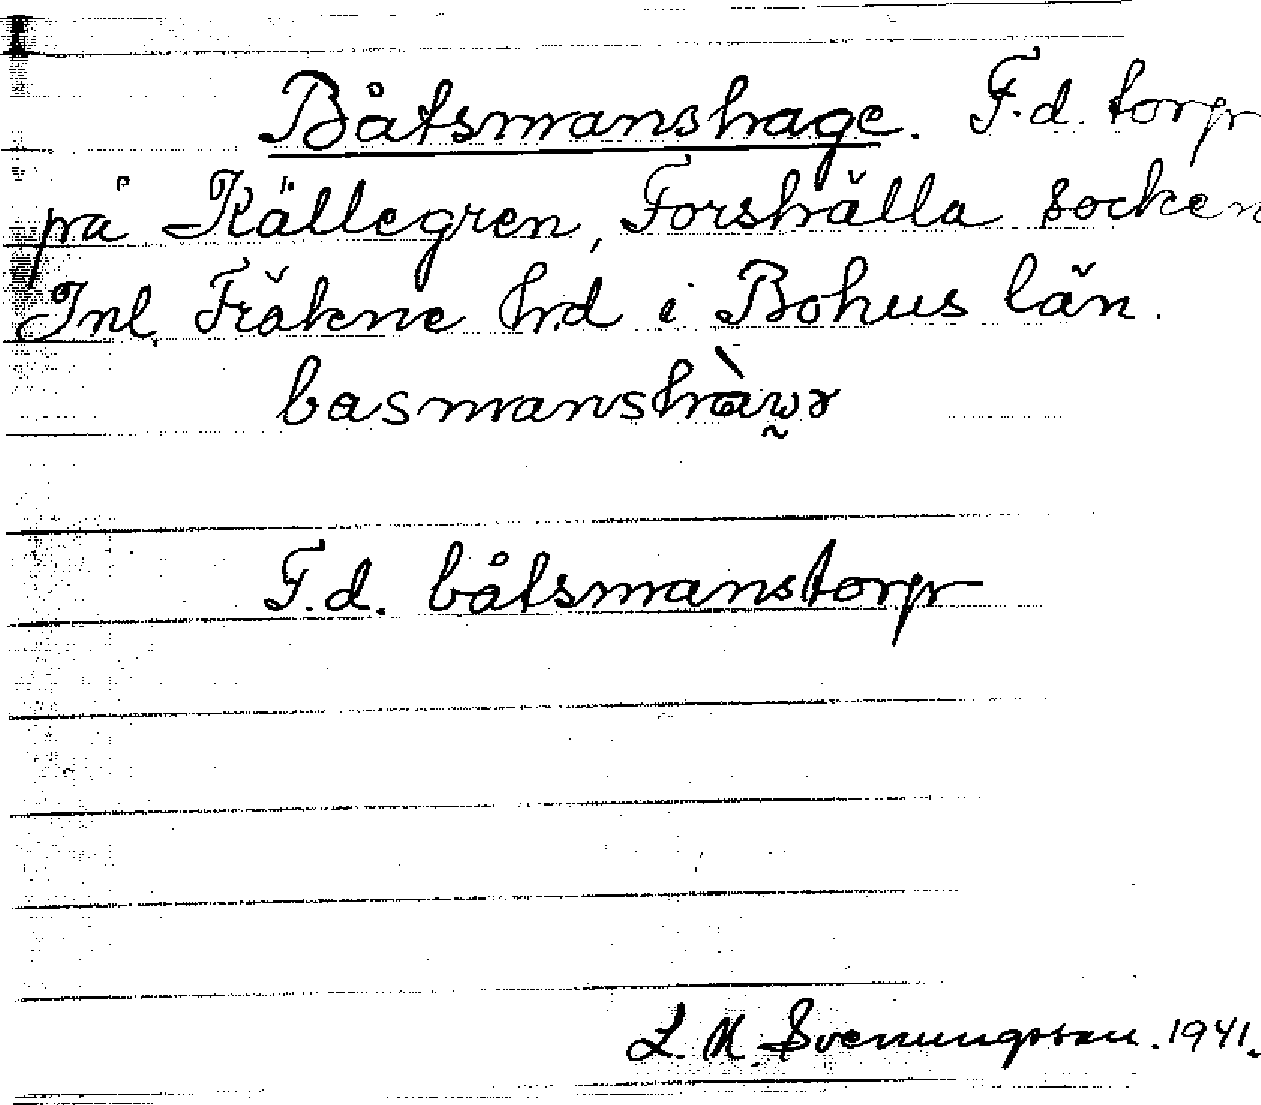 Båtsmanshage. F.d. torp
på Källegren, Forshälla socken
Inl. Fräkne hrd i Bohus län.
F.d. båtsmanstorp
L. M. Svenungsson. 1941.